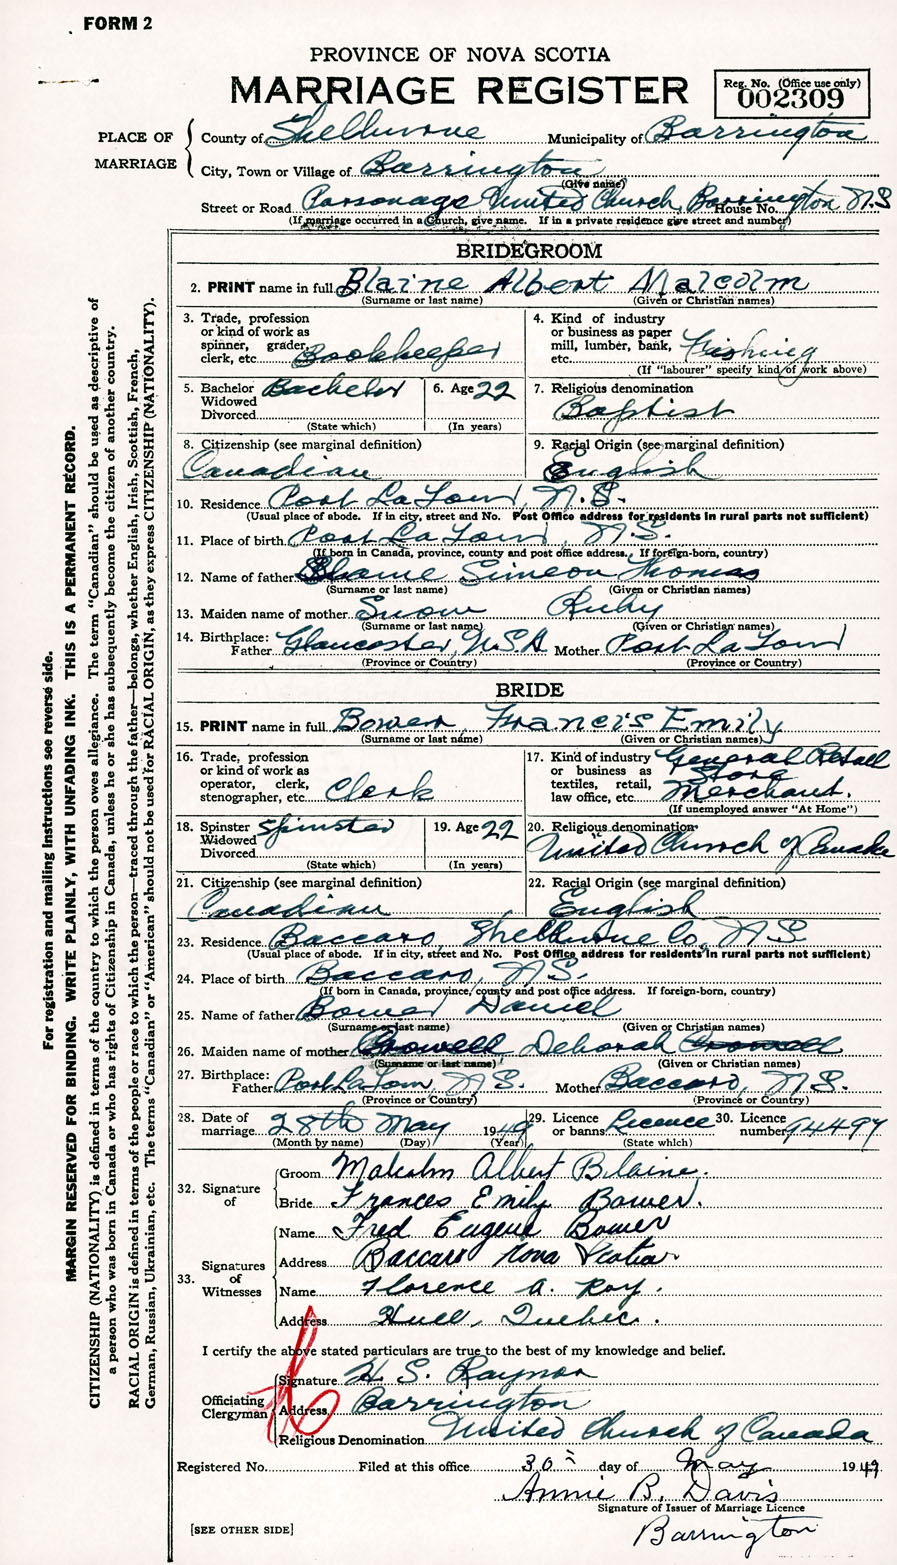 FORM 2
PROVINCE OF NOVA SCOTIA
MARRIAGE REGISTER
Reg. No. (Office use only)
002309
PLACE OF MARRIAGE
County of Shelburne Municipality of Barrington
City, Town or Village of Barrington
(Give name)
Street or Road Parsonage United Church, Barrington N.S House No.
(If marriage occurred in a Church, give name. If in a private residence give street and number)
BRIDEGROOM
2. PRINT name in full Blaine Albert Malcolm
(Surname or last name) (Given or Christian names)
3. Trade, profession or kind of work as spinner, grader, clerk, etc. Bookkeeper
4. Kind of industry or business as paper mill, lumber, bank, etc. Fishing
(If "labourer" specify kind of work above)
5. Bachelor Widowed Divorced Bachelor
(State which)
6. Age 22
(In years)
7. Religious denomination
Baptist
8. Citizenship (see marginal definition)
Canadian
9. Racial Origin (see marginal definition)
English
10. Residence Port La Tour, N.S.
(Usual place of abode. If in city, street and No. Post Office address for residents in rural parts not sufficient)
11. Place of birth Port La Tour, N.S.
(If born in Canada, province, county and post office address. If foreign-born, country)
12. Name of father Blaine Simeon Thomas
(Surname or last name) (Given or Christian names)
13. Maiden name of mother Snow Ruby
(Surname or last name) (Given or Christian names)
14. Birthplace: Father Gloucester, U.S.A Mother Port La Tour
(Province or Country) (Province or Country)
BRIDE
15. PRINT name in full Bower, Francis Emily
(Surname or last name) (Given or Christian names)
16. Trade, profession or kind of work as operator, clerk, stenographer, etc. Clerk
17. Kind of industry or business as textiles, retail, law office, etc. General Retail Store Merchant.
(If unemployed answer "At Home")
18. Spinster Widowed Divorced Spinster
(State which)
19. Age 22
(In years)
20. Religious denomination
United Church of Canada
21. Citizenship (see marginal definition)
Canadian
22. Racial Origin (see marginal definition)
English
23. Residence Baccaro, Shelburne Co, N S
(Usual place of abode. If in city, street and No. Post Office address for residents in rural parts not sufficient)
24. Place of birth Baccaro, N.S.
(If born in Canada, province, county and post office address. If foreign-born, country)
25. Name of father Bower Daniel
(Surname or last name) (Given or Christian names)
26. Maiden name of mother Crowell Deborah Crowell
(Surname or last name) (Given or Christian names)
27. Birthplace: Father Port La Tour, N S. Mother Baccaro, N S.
(Province or Country) (Province or Country)
28. Date of marriage 28th May 1949
(Month by name) (Day) (Year)
29. Licence or banns Licence
(State which)
30. Licence number 94497
32. Signature of
Groom Malcolm Albert Blaine.
Bride Frances Emily Bower.
33. Signatures of Witnesses
Name Fred Eugene Bower
Address Baccaro Nova Scotia
Name Florence A. Roy.
Address Hull, Quebec.
I certify the above stated particulars are true to the best of my knowledge and belief.
Officiating Clergyman
Signature H. S. Raynor
Address Barrington
Religious Denomination United Church of Canada
Registered No. Filed at this office 30 day of May 1949
Annie B. Davis
Signature of Issuer of Marriage Licence
Barrington
[SEE OTHER SIDE]
For registration and mailing instructions see reverse side.
MARGIN RESERVED FOR BINDING. WRITE PLAINLY, WITH UNFADING INK. THIS IS A PERMANENT RECORD.
CITIZENSHIP (NATIONALITY) is defined in terms of the country to which the person owes allegiance. The term "Canadian" should be used as descriptive of
a person who was born in Canada or who has rights of Citizenship in Canada, unless he or she has subsequently become the citizen of another country.
RACIAL ORIGIN is defined in terms of the people or race to which the person—traced through the father—belongs, whether English, Irish, Scottish, French,
German, Russian, Ukrainian, etc. The terms "Canadian" or "American" should not be used for RACIAL ORIGIN, as they express CITIZENSHIP (NATIONALITY).